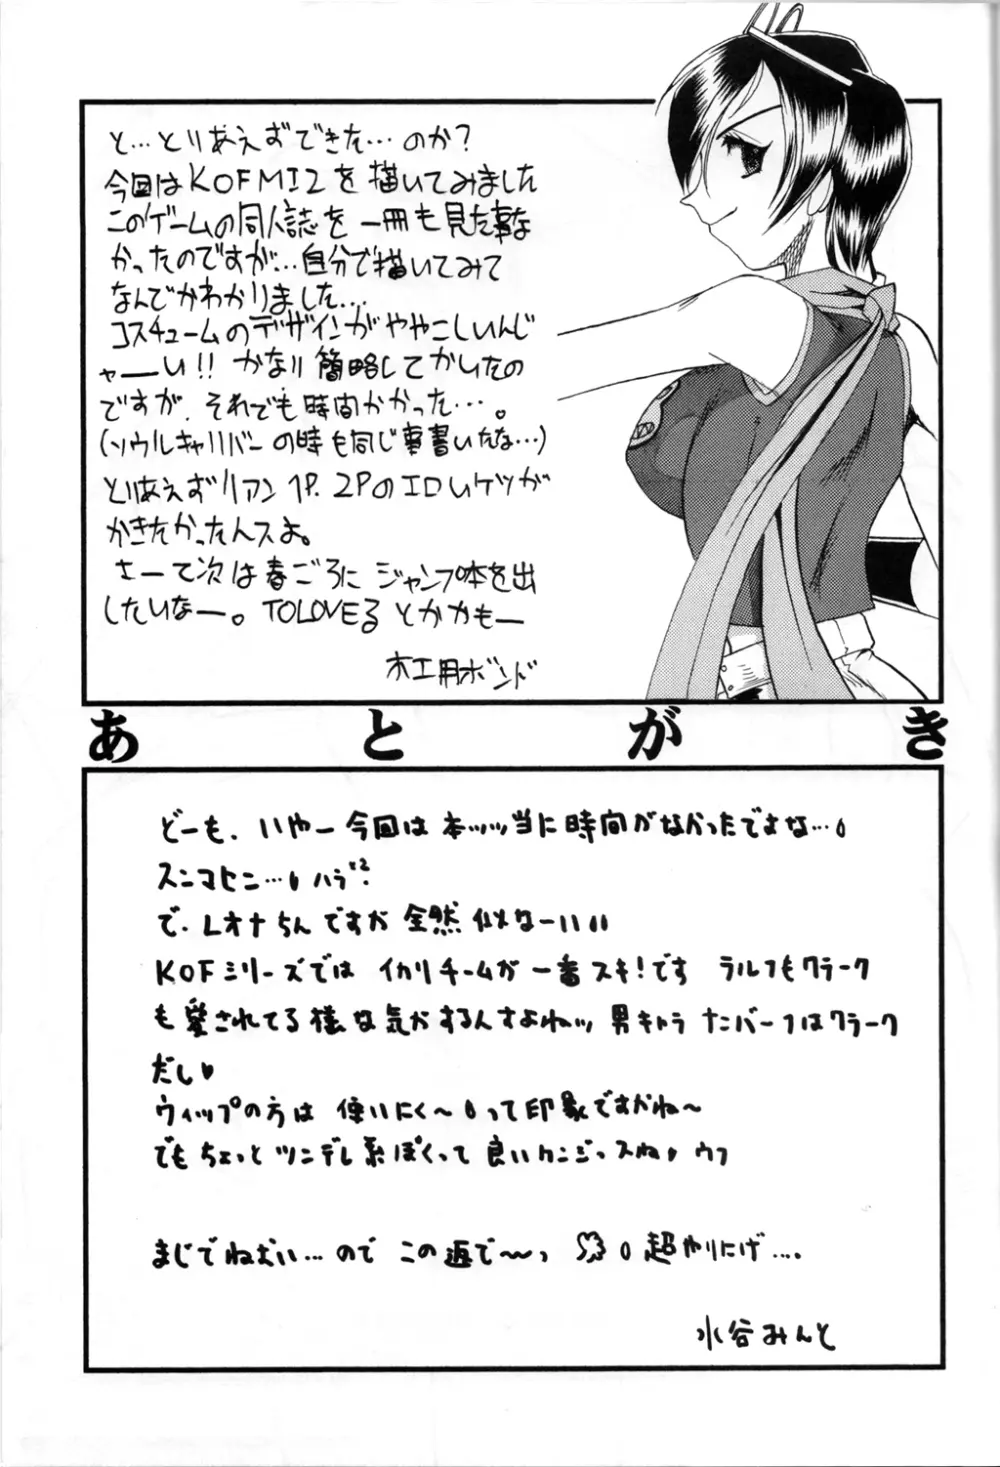 と…とりあえずできた…のか?
今回はKOFMI2を描いてみました
このゲームの同人誌を一冊も見た事な
かったのですが…自分で描いてみて
なんでかわかりました…
コスチュームのデザインがややこしいんじ
ゃーい!! かなり簡略してかいたの
ですが、それでも時間かかった…。
(ソウルキャリバーの時も同じ事書いたな…)
とりあえずリアン1P. 2PのエロいケツがI
かきたかったんスよ。
さーて次は春ごろにジャンプ本を出
したいなー。TOLOVEるとかかもー
木工用ボンド
あとがき
どーも、いやー今回は本ッッ当に時間がなかったですよな…
スンマヒン…
で、レオナちんですが全然似なーい
KOFシリーズではイカリチームが一番スキ!です ラルフもクラーク
も愛されてる様な気がするんすよねッ 男キャラナンバー1はクラーク
だし♥
ウィップの方は使いにく〜いって印象ですかね〜
でもちょっとツンデレ系ぽくって良いカンジっスね♥ウフ
まじでねむい…のでこの辺で〜っ 超やりにげ….
水谷みんと